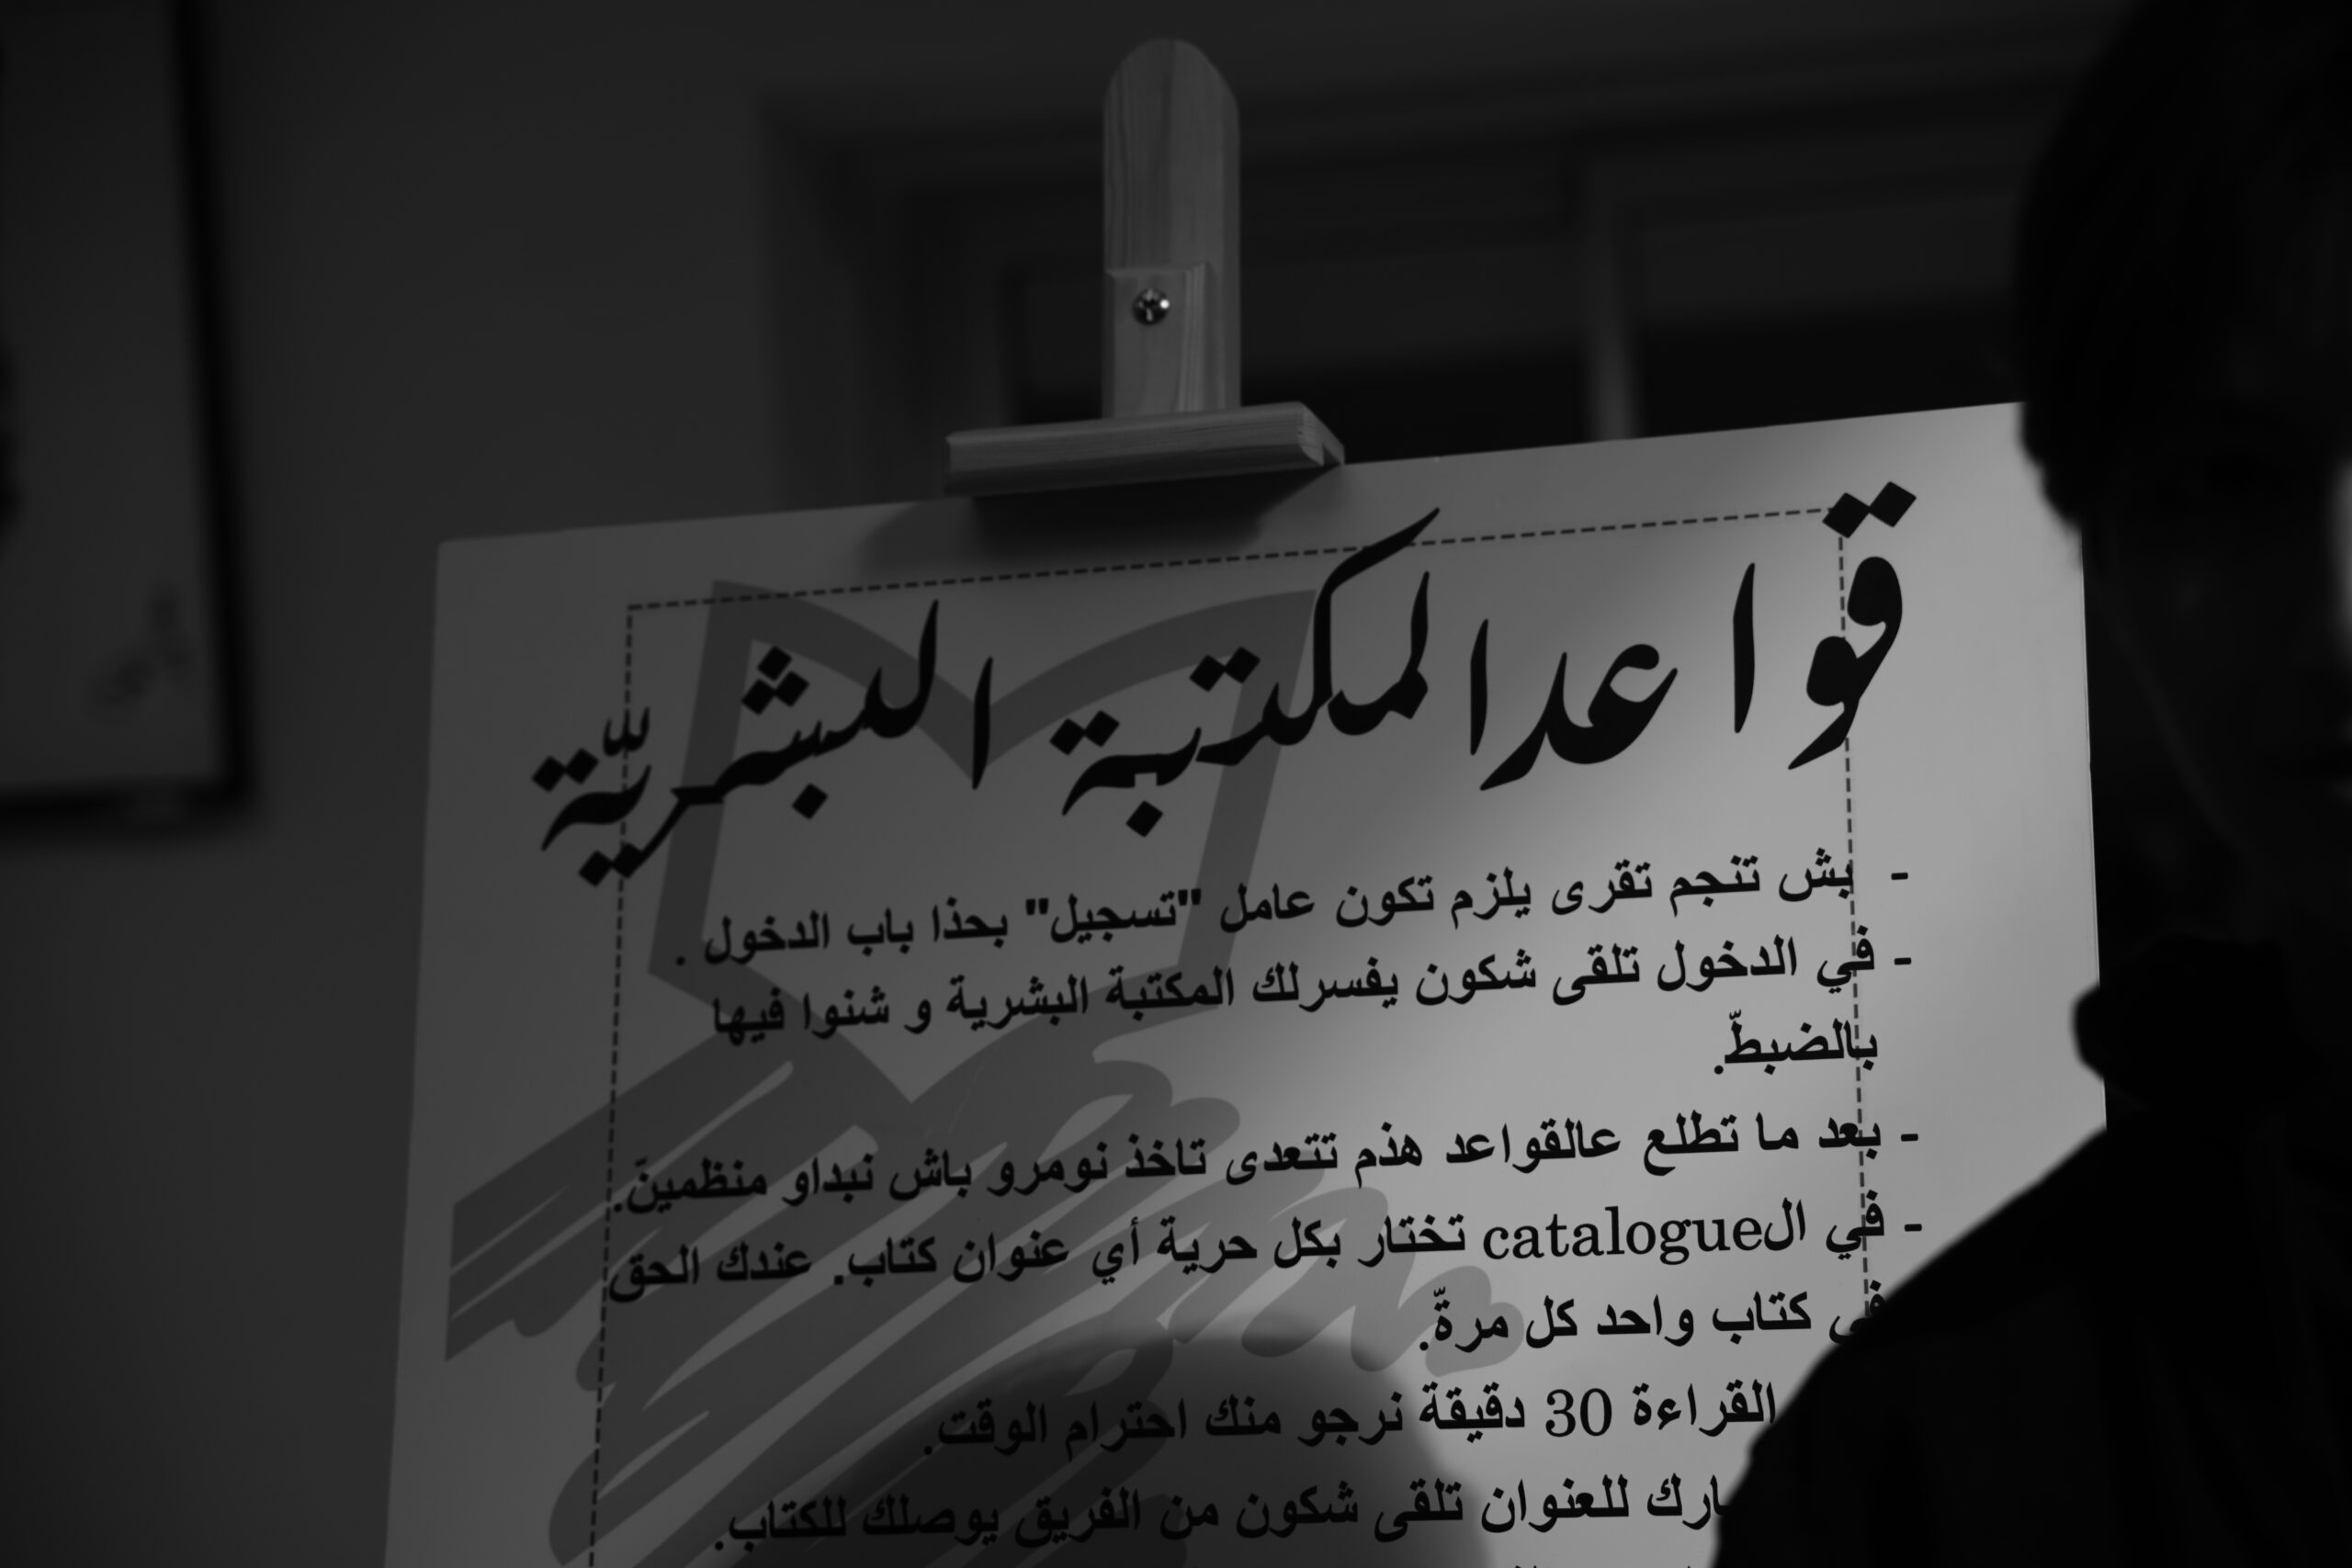 قواعد المكتبة البشريّة
- بش تنجم تقرى يلزم تكون عامل "تسجيل" بحذا باب الدخول .
- في الدخول تلقى شكون يفسرلك المكتبة البشرية و شنوا فيها
بالضبطّ.
- بعد ما تطلع عالقواعد هذم تتعدى تاخذ نومرو باش نبداو منظمينّ.
- في الcatalogue تختار بكل حرية أي عنوان كتاب. عندك الحق
في كتاب واحد كل مرةّ.
القراءة 30 دقيقة نرجو منك احترام الوقت.
للعنوان تلقى شكون من الفريق يوصلك للكتاب.